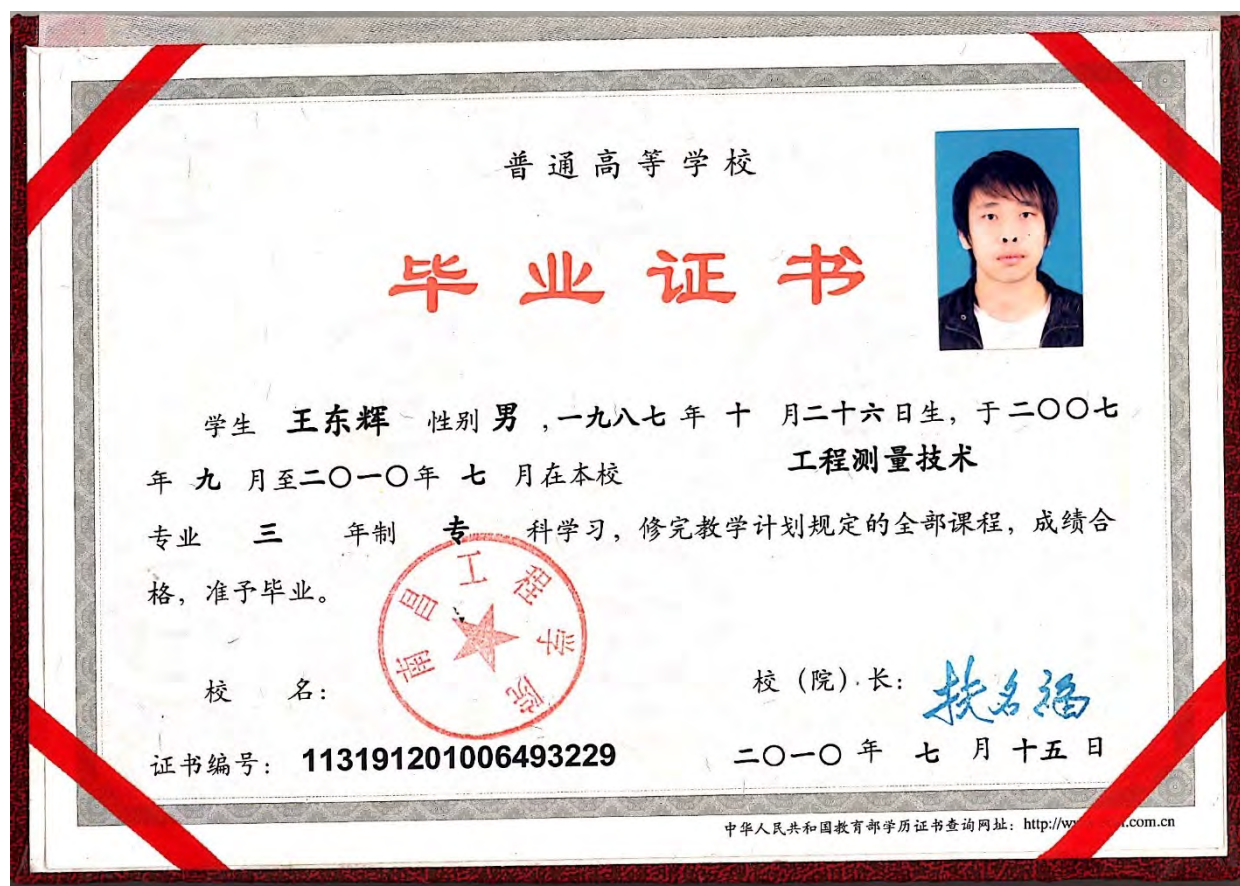 普通高等学校
毕业证书
学生 王东辉 性别 男 ,一九八七 年 十 月二十六日生，于二〇〇七
年 九 月至二〇一〇年 七 月在本校 工程测量技术
专业 三 年制 专 科学习，修完教学计划规定的全部课程，成绩合
格，准予毕业。
南昌工程学院
校 名：
校（院）长： 扶名福
证书编号： 113191201006493229
二〇一〇 年 七 月 十五 日
中华人民共和国教育部学历证书查询网址：http://w .com.cn